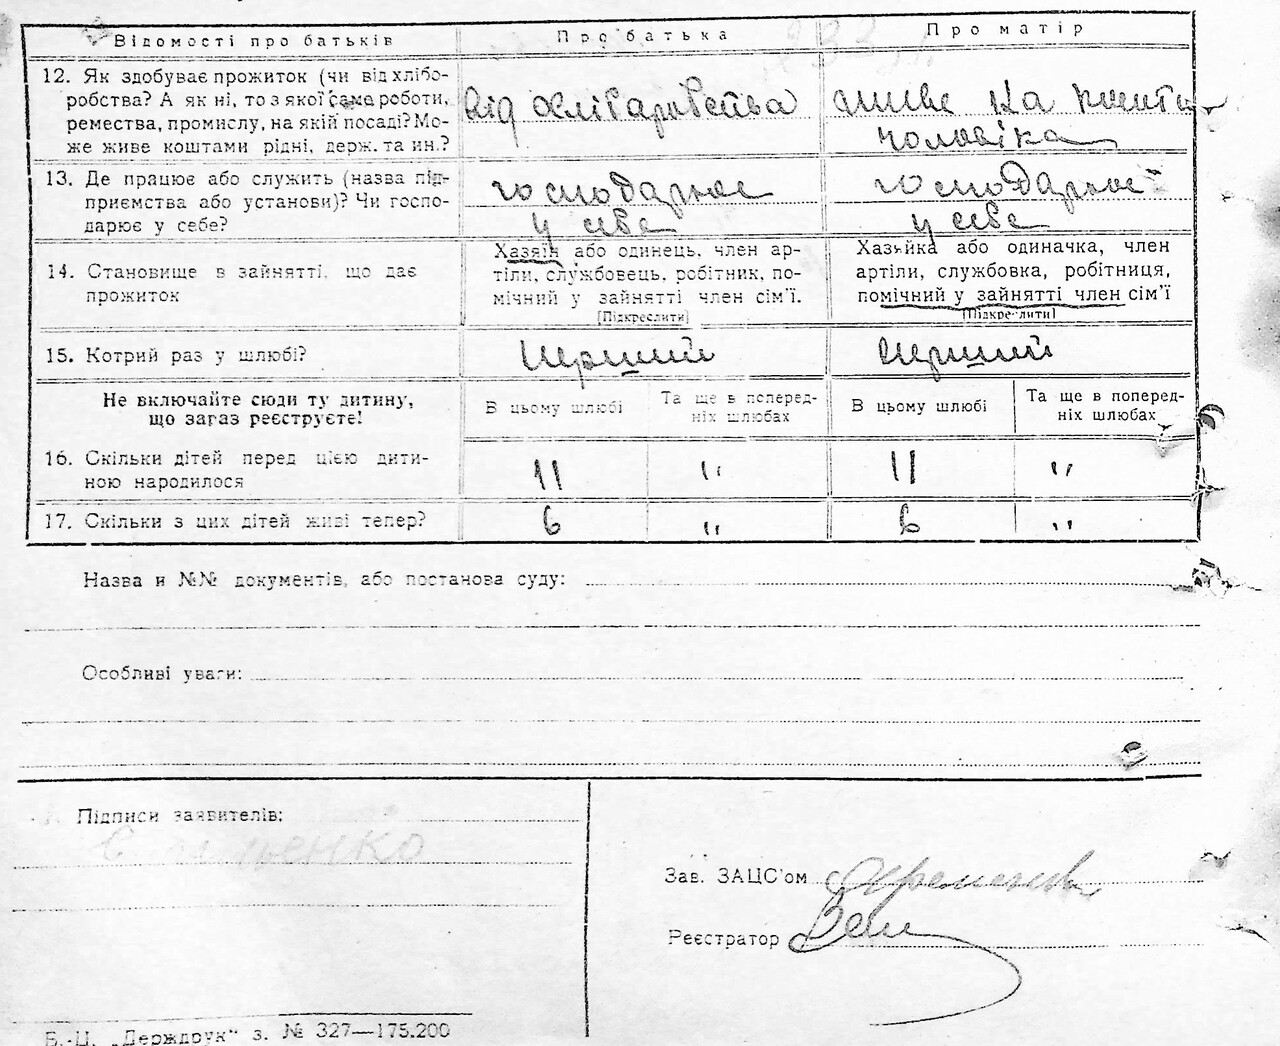 Відомості про батьків
Про батька
Про матір
12. Як здобуває прожиток (чи від хлібо-
робства? А як ні, то з якої саме роботи,
ремества, промислу, на якій посаді? Мо-
же живе коштами рідні, держ. та ин.?
від хліборобства
живе на кошти
чоловіка
13. Де працює або служить (назва під-
приємства або установи)? Чи госпо-
дарює у себе?
господарює
у себе
господарює
у себе
14. Становище в зайнятті, що дає
прожиток
Хазяїн або одинець, член ар-
тіли, службовець, робітник, по-
мічний у зайнятті член сім'ї.
[Підкреслити]
Хазяйка або одиначка, член
артіли, службовка, робітниця,
помічний у зайнятті член сім'ї
[Підкреслити]
15. Котрий раз у шлюбі?
перший
перший
Не включайте сюди ту дитину,
що зараз реєструєте!
В цьому шлюбі
Та ще в поперед-
ніх шлюбах
В цьому шлюбі
Та ще в поперед-
ніх шлюбах
16. Скільки дітей перед цією дити-
ною народилося
11 " 11 "
17. Скільки з цих дітей живі тепер?
6 " 6 "
Назва и №№ документів, або постанова суду:
Особливі уваги:
Підписи заявителів:
Зав. ЗАЦС'ом
Реєстратор
Б.-Ц. „Держдрук" з. № 327—175.200